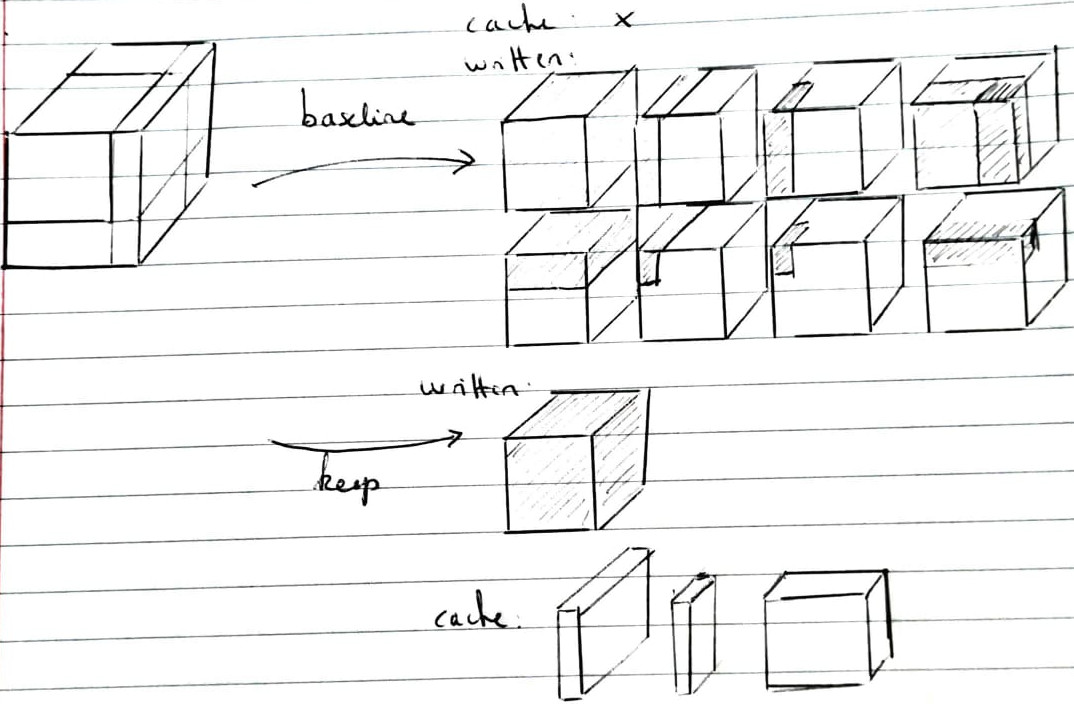 cache: x
written:
baseline
written:
keep
cache: